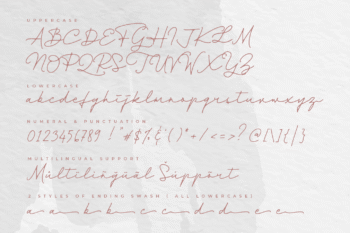 UPPERCASE
ABCDEFGHIJKLM
NOPQRSTUVWXYZ
LOWERCASE
abcdefghijklmnopqrstuvwxyz
NUMERAL & PUNCTUATION
0123456789 ! "#$%&'()*+/<=>?@[\]{|}
MULTILINGUAL SUPPORT
Multilingual Support
2 STYLES OF ENDING SWASH ( ALL LOWERCASE)
a a b b c c d d e e